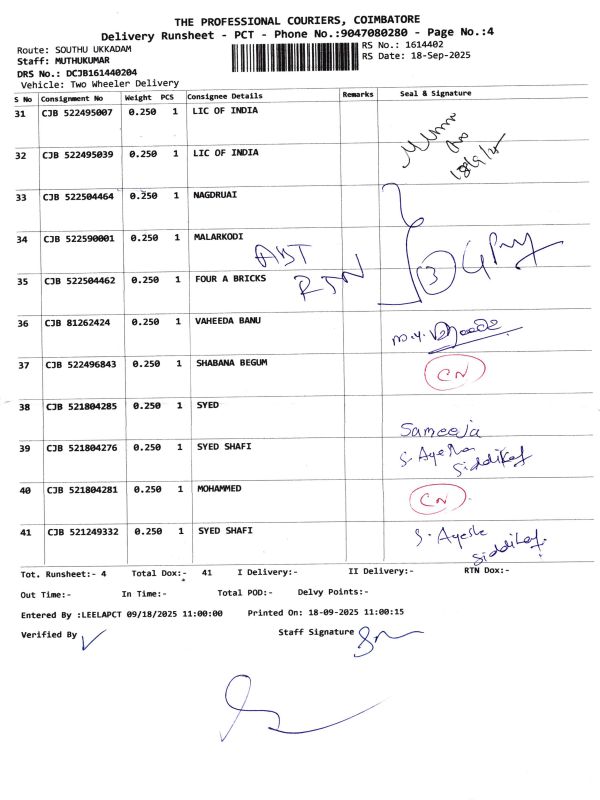 THE PROFESSIONAL COURIERS, COIMBATORE
Delivery Runsheet - PCT - Phone No.:9047080280 - Page No.:4
Route: SOUTHU UKKADAM
RS No.: 1614402
Staff: MUTHUKUMAR
RS Date: 18-Sep-2025
DRS No.: DCJB161440204
Vehicle: Two Wheeler Delivery
S No Consignment No Weight PCS Consignee Details Remarks Seal & Signature
31 CJB 522495007 0.250 1 LIC OF INDIA
32 CJB 522495039 0.250 1 LIC OF INDIA
18/9/25
33 CJB 522504464 0.250 1 NAGDRUAI
34 CJB 522590001 0.250 1 MALARKODI
3
35 CJB 522504462 0.250 1 FOUR A BRICKS
36 CJB 81262424 0.250 1 VAHEEDA BANU
37 CJB 522496843 0.250 1 SHABANA BEGUM CN
38 CJB 521804285 0.250 1 SYED
Sameeja
39 CJB 521804276 0.250 1 SYED SHAFI S. Ayesha
40 CJB 521804281 0.250 1 MOHAMMED CN
41 CJB 521249332 0.250 1 SYED SHAFI S. Ayesha
Tot. Runsheet:- 4 Total Dox:- 41 I Delivery:- II Delivery:- RTN Dox:-
Out Time:- In Time:- Total POD:- Delvy Points:-
Entered By :LEELAPCT 09/18/2025 11:00:00 Printed On: 18-09-2025 11:00:15
Verified By Staff Signature